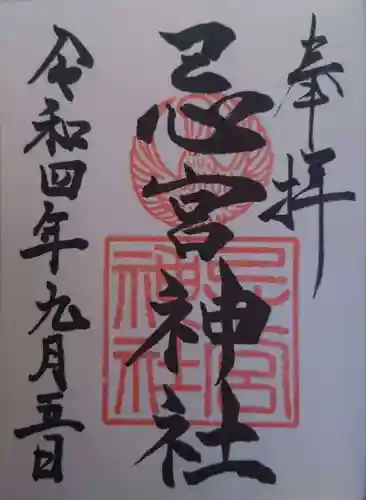 奉拝
忌宮神社
忌宮
神社
令和四年九月五日